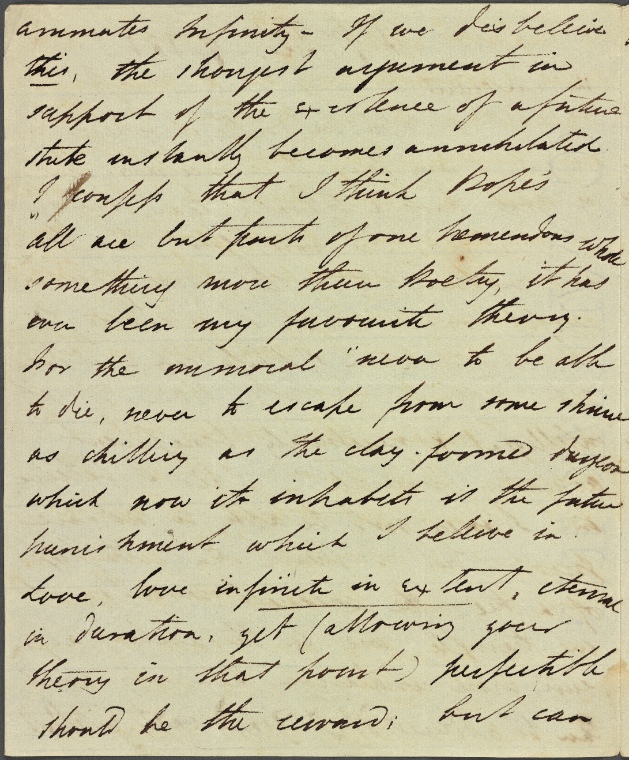 animates Infinity – If we disbelieve
this, the strongest argument in
support of the existence of a future
state instantly becomes annihilated.
I confess that I think Pope's
"all are but parts of one tremendous whole
something more than Poetry, it has
ever been my favourite theory.
For the immoral "never to be able
to die, never to escape from some shrine
as chilling as the clay-formed dungeon
which now it inhabits is the future
punishment which I believe in.
Love, love infinite in extent, eternal
in duration, yet (allowing your
theory in that point) perfectible
should be the reward; but can